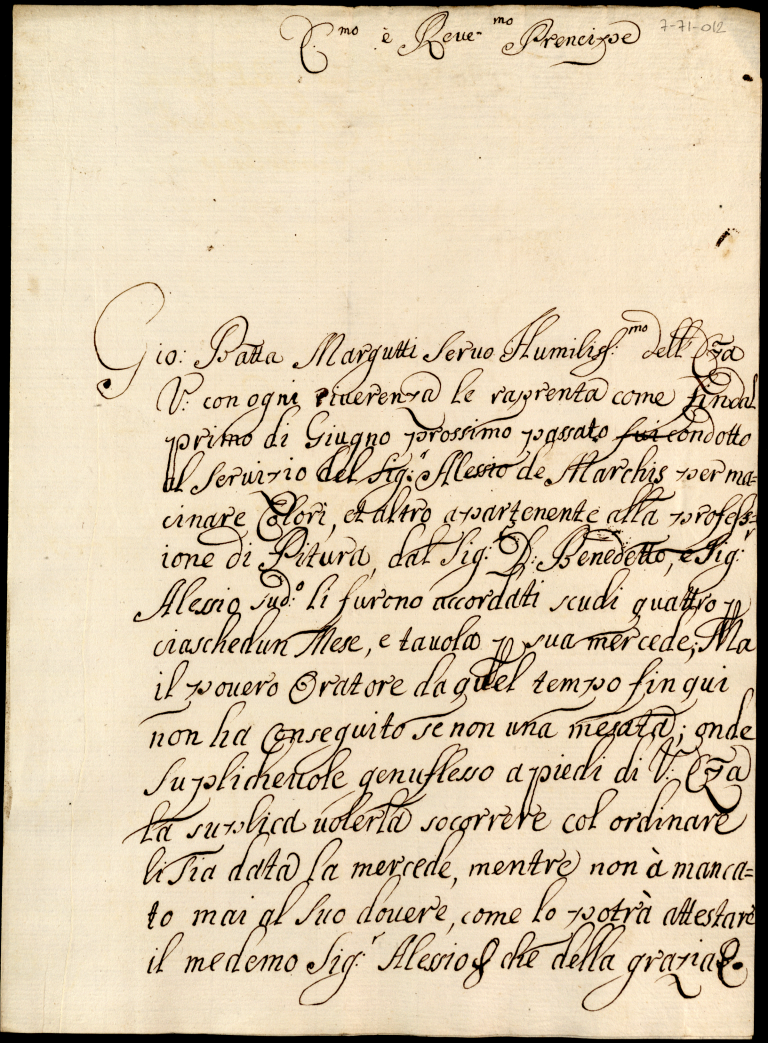 E.mo è Reue.mo Prencipe
7-71-012
Gio: Batta Margutti Seruo Humiliss:mo dell' Eza
V: con ogni riuerenza le rapprenta come sindal
primo di Giugno prossimo passato fui condotto
al Seruizio del Sig:r Alessio de Marchis per ma=
cinare Colori, et altro apartenente alla profess=
ione di Pitura, dal Sig:r D: Benedetto, e Sig:r
Alessio sud:o li furono accordati scudi quattro p
ciaschedun Mese, e tauola p sua mercede; Ma
il pouero Oratore da quel tempo fin qui
non ha conseguito se non una mesata; onde
Suplicheuole genuflesso a piedi di V: Eza
la suplica uolerla socorrere col ordinare
li sia data la mercede, mentre non à manca=
to mai al suo douere, come lo potrà attestare
il medemo Sig:r Alessio che della grazia